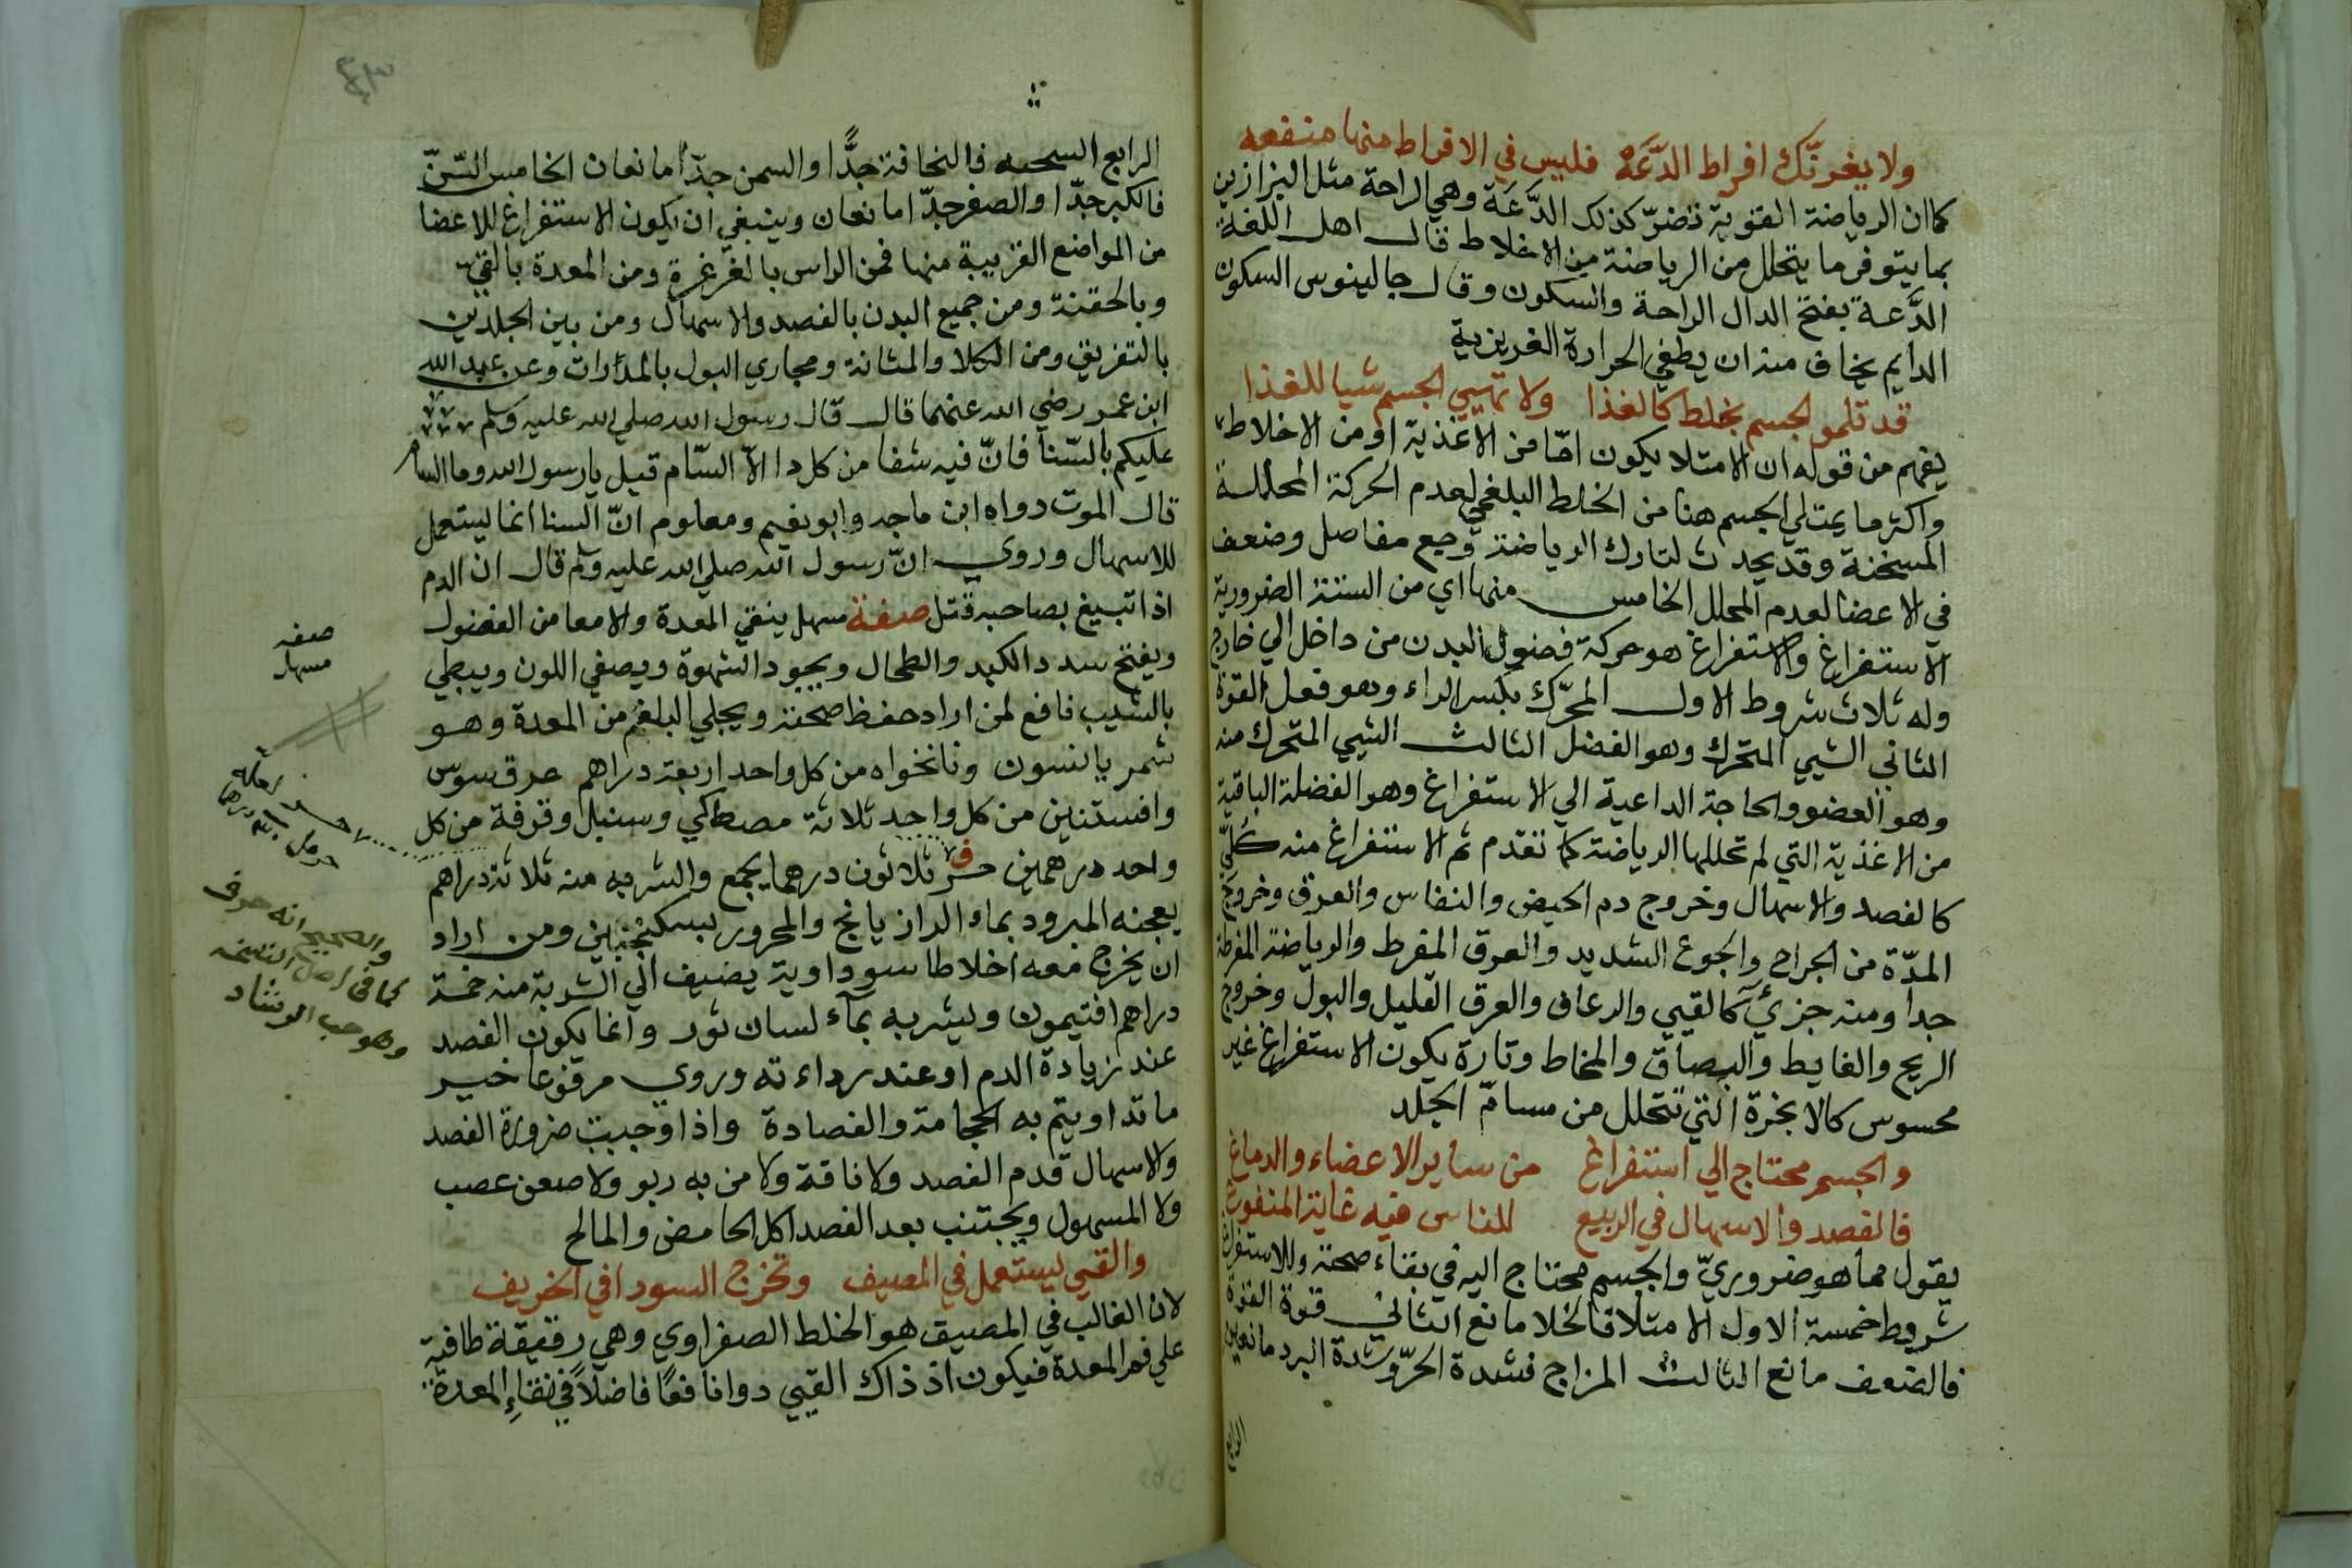 ولا يغرنّك افراط الدَّعَه فليس في الافراط منها منفعه
كما ان الرياضة القوية تضرّ كذلك الدَّعَة وهي الراحة مثل البزازين
بما يتوفر ما يتحلل من الرياضة من الاخلاط قال اهل اللغة
الدَّعة بفتح الدال الراحة والسكون وقال جالينوس السكون
الدايم يخاف منه ان يطفي الحرارة الغريزية
قد تلمو لجسم بخلط كالغذا ولا تهيي الجسم شيا للغذا
يفهم من قوله ان الامتلا يكون امّا من الاغذية او من الاخلاط
واكثر ما يمتلي الجسم هنا من الخلط البلغمي لعدم الحركة المحللة
المسخنة وقد يحدث لتارك الرياضة وجع مفاصل وضعف
في الاعضا لعدم المحلل الخامس منها اي من الستة الضرورية
الاستفراغ والاستفراغ هو حركة فضول البدن من داخل الي خارج
وله ثلاث شروط الاول المحرّك بكسر الراء وهو فعل القوة
الثاني الشيي المتحرك وهو الفضل الثالث الشيي المتحرك منه
وهو العضو والحاجة الداعية الي الاستفراغ وهو الفضلة الباقية
من الاغذية التي لم تحللها الرياضة كما تقدم ثم الاستفراغ منه كُلّي
كالفصد والاسهال وخروج دم الحيض والنفاس والعرق وخروج
المدّة من الجراح والجوع الشديد والعرق المفرط والرياضة المفرطة
جدا ومنه جزئي كالقيي والرعاف والعرق القليل والبول وخروج
الريح والغايط والبصاق والمخاط وتارة يكون الاستفراغ غير
محسوس كالابخرة التي تتحلل من مسامّ الجلد
والجسم محتاج الي استفراغ من ساير الاعضاء والدماغ
فالفصد والاسهال في الربيع للناس فيه غاية المنفوع
يقول مما هو ضروريّ والجسم محتاج اليه في بقاء صحته وللاستفراغ
شروط خمسة الاول الامتلا فالخلا مانع الثاني قوة القوة
فالضعف مانع الثالث المزاج فشدة الحرّ وشدة البرد مانعين
الرابع
الرابع السحنه فالنحافة جدًّا والسمن جدّا مانعان الخامس السّنّ
فالكبر جدّا والصغر جدّا مانعان وينبغي ان يكون الاستفراغ للاعضا
من المواضع القريبة منها فمن الراس بالغرغرة ومن المعدة بالقيّ
وبالحقنة ومن جميع البدن بالفصد والاسهال ومن بين الجلدين
بالتعريق ومن الكلا والمثانة ومجاري البول بالمدّارات وعن عبد الله
ابن عمر رضي الله عنهما قال قال رسول الله صلي الله عليه وسلم
عليكم بالسّنا فانّ فيه شفا من كل دا الاّ السّام قيل يا رسول الله وما السام
قال الموت رواه ابن ماجه وابو نعيم ومعلوم انّ السنا انما يستعمل
للاسهال وروي انّ رسول الله صلي الله عليه وسلم قال ان الدم
اذا تبيغ بصاحبه قتل صفة مسهل ينقي المعدة والامعا من الفضول
ويفتح سدد الكبد والطحال ويجود الشهوة ويصفي اللون ويبطي
بالشيب نافع لمن اراد حفظ صحته ويجلي البلغم من المعدة وهو
شمر يانسون ونانخواه من كل واحد اربعة دراهم عرق سوس
وافسنتين من كل واحد ثلاثة مصطكي وسنبل وقرفة من كل
واحد درهمين حرف ثلاثون درهما يجمع والشربه منه ثلاثة دراهم
يعجنه المبرود بماء الرازيانج والمحرور بسكنجبين ومن اراد
ان يخرج معه اخلاطا سوداوية يضيف الي الشربة منه خمسة
دراهم افتيمون ويشربه بمآء لسان ثور وانما يكون الفصد
عند زيادة الدم او عند رداءته وروي مرفوعا خير
ما تداويتم به الحجامة والفصادة واذا وجبت ضرورة الفصد
والاسهال قدم الفصد ولا فاقة ولا من به ربو ولا ضعف عصب
ولا المسهول ويجتنب بعد الفصد اكل الحامض والمالح
والقيي يستعمل في المصيف وتخرج السودا في الخريف
لان الغالب في المصيف هو الخلط الصفراوي وهي رقيقة طافية
علي فم المعدة فيكون اذ ذاك القيي دوا نافعًا فاضلاً في نقاءِ المعدة
صفه
مسهل
والصحيح انه حرف
كما في اصل النسخه
وهو حب الرشاد